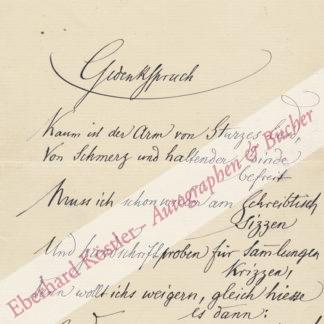 Gedenkspruch
Kaum ist der Arm von Sturzes
Von Schmerz und haltender Binde
befreit
Muss ich schon wieder am Schreibtisch
sizzen
Und Handschriftproben für Samlungen
krizzen,
Denn wollt ichs weigern, gleich hiesse
es dann:
Eberhard Köstler Autographen & Bücher